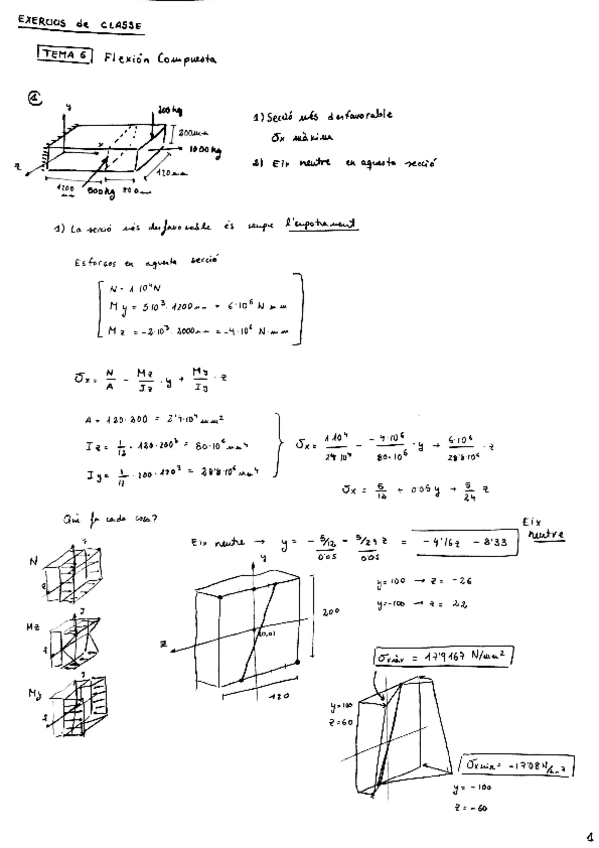 EXERCICIS de CLASSE
TEMA 6 Flexión Compuesta
1
y
200 kg
200 mm
x
1000 kg
z
120 mm
1200 mm
500 kg
800 mm
1) Secció més desfavorable
σx màxima
2) Eix neutre en aquesta secció
1) La secció més desfavorable és sempre l'empotrament
Esforços en aquesta secció
N = 1·10⁴ N
My = 5·10³ · 1200 mm = 6·10⁶ N mm
Mz = -2·10³ · 2000 mm = -4·10⁶ N·mm
σx = N/A - Mz/Iz · y + My/Iy · z
A = 120·200 = 2'4·10⁴ mm²
Iz = 1/12 · 120·200³ = 80·10⁶ mm⁴
Iy = 1/12 · 200·120³ = 28'8·10⁶ mm⁴
σx = 1·10⁴/24·10³ - -4·10⁶/80·10⁶ · y + 6·10⁶/28'8·10⁶ · z
σx = 5/12 + 0.05 y + 5/24 z
Què fa cada cosa?
Eix neutre → y = - 5/12 / 0.05 - 5/24 z / 0.05 = -4'16z - 8'33
Eix neutre
N
y = 100 → z = -26
y = -100 → z = 22
y
200
z
(0,0)
120
Mz
My
σx màx = 17'9167 N/mm²
y = 100
z = 60
σx min = -17'084 N/mm²
y = -100
z = -60
1